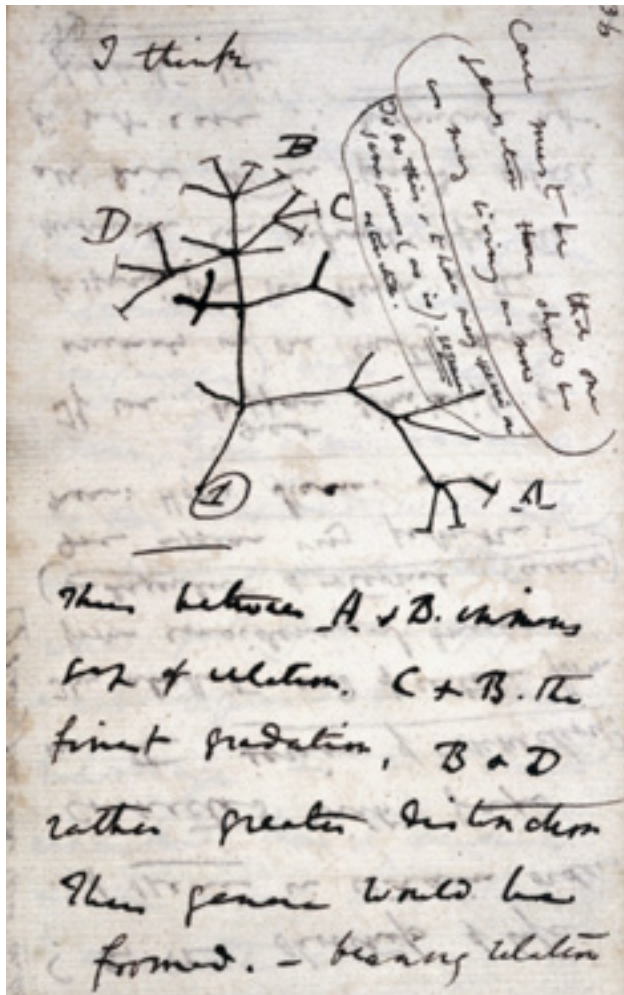 I think
B
C
D
A
1
Case must be that one
generation then should be
as many living as now
To do this & to have many species in
same genus (as is). requires
extinction.
36
Thus between A & B. immens
gap of relation. C & B. the
finest gradation, B & D
rather greater distinction
Thus genera would be
formed. — bearing relation